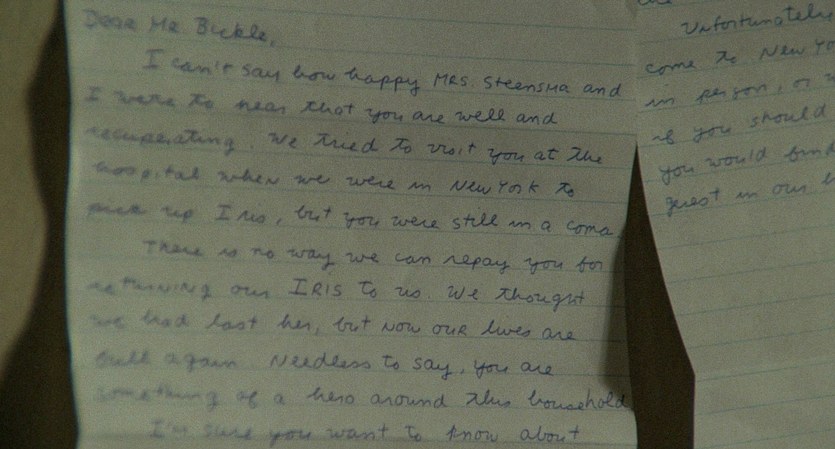 Dear Mr Bickle,
I can't say how happy MRS. Steensma and
I were to hear that you are well and
recuperating. We tried to visit you at the
hospital when we were in New York to
pick up Iris, but you were still in a coma
There is no way we can repay you for
returning our IRIS to us. We thought
we had lost her, but now our lives are
full again Needless to say, you are
something of a hero around this household.
I'm sure you want to know about
Unfortunately
come to New Yo
in person, or
if you should
you would find
guest in our